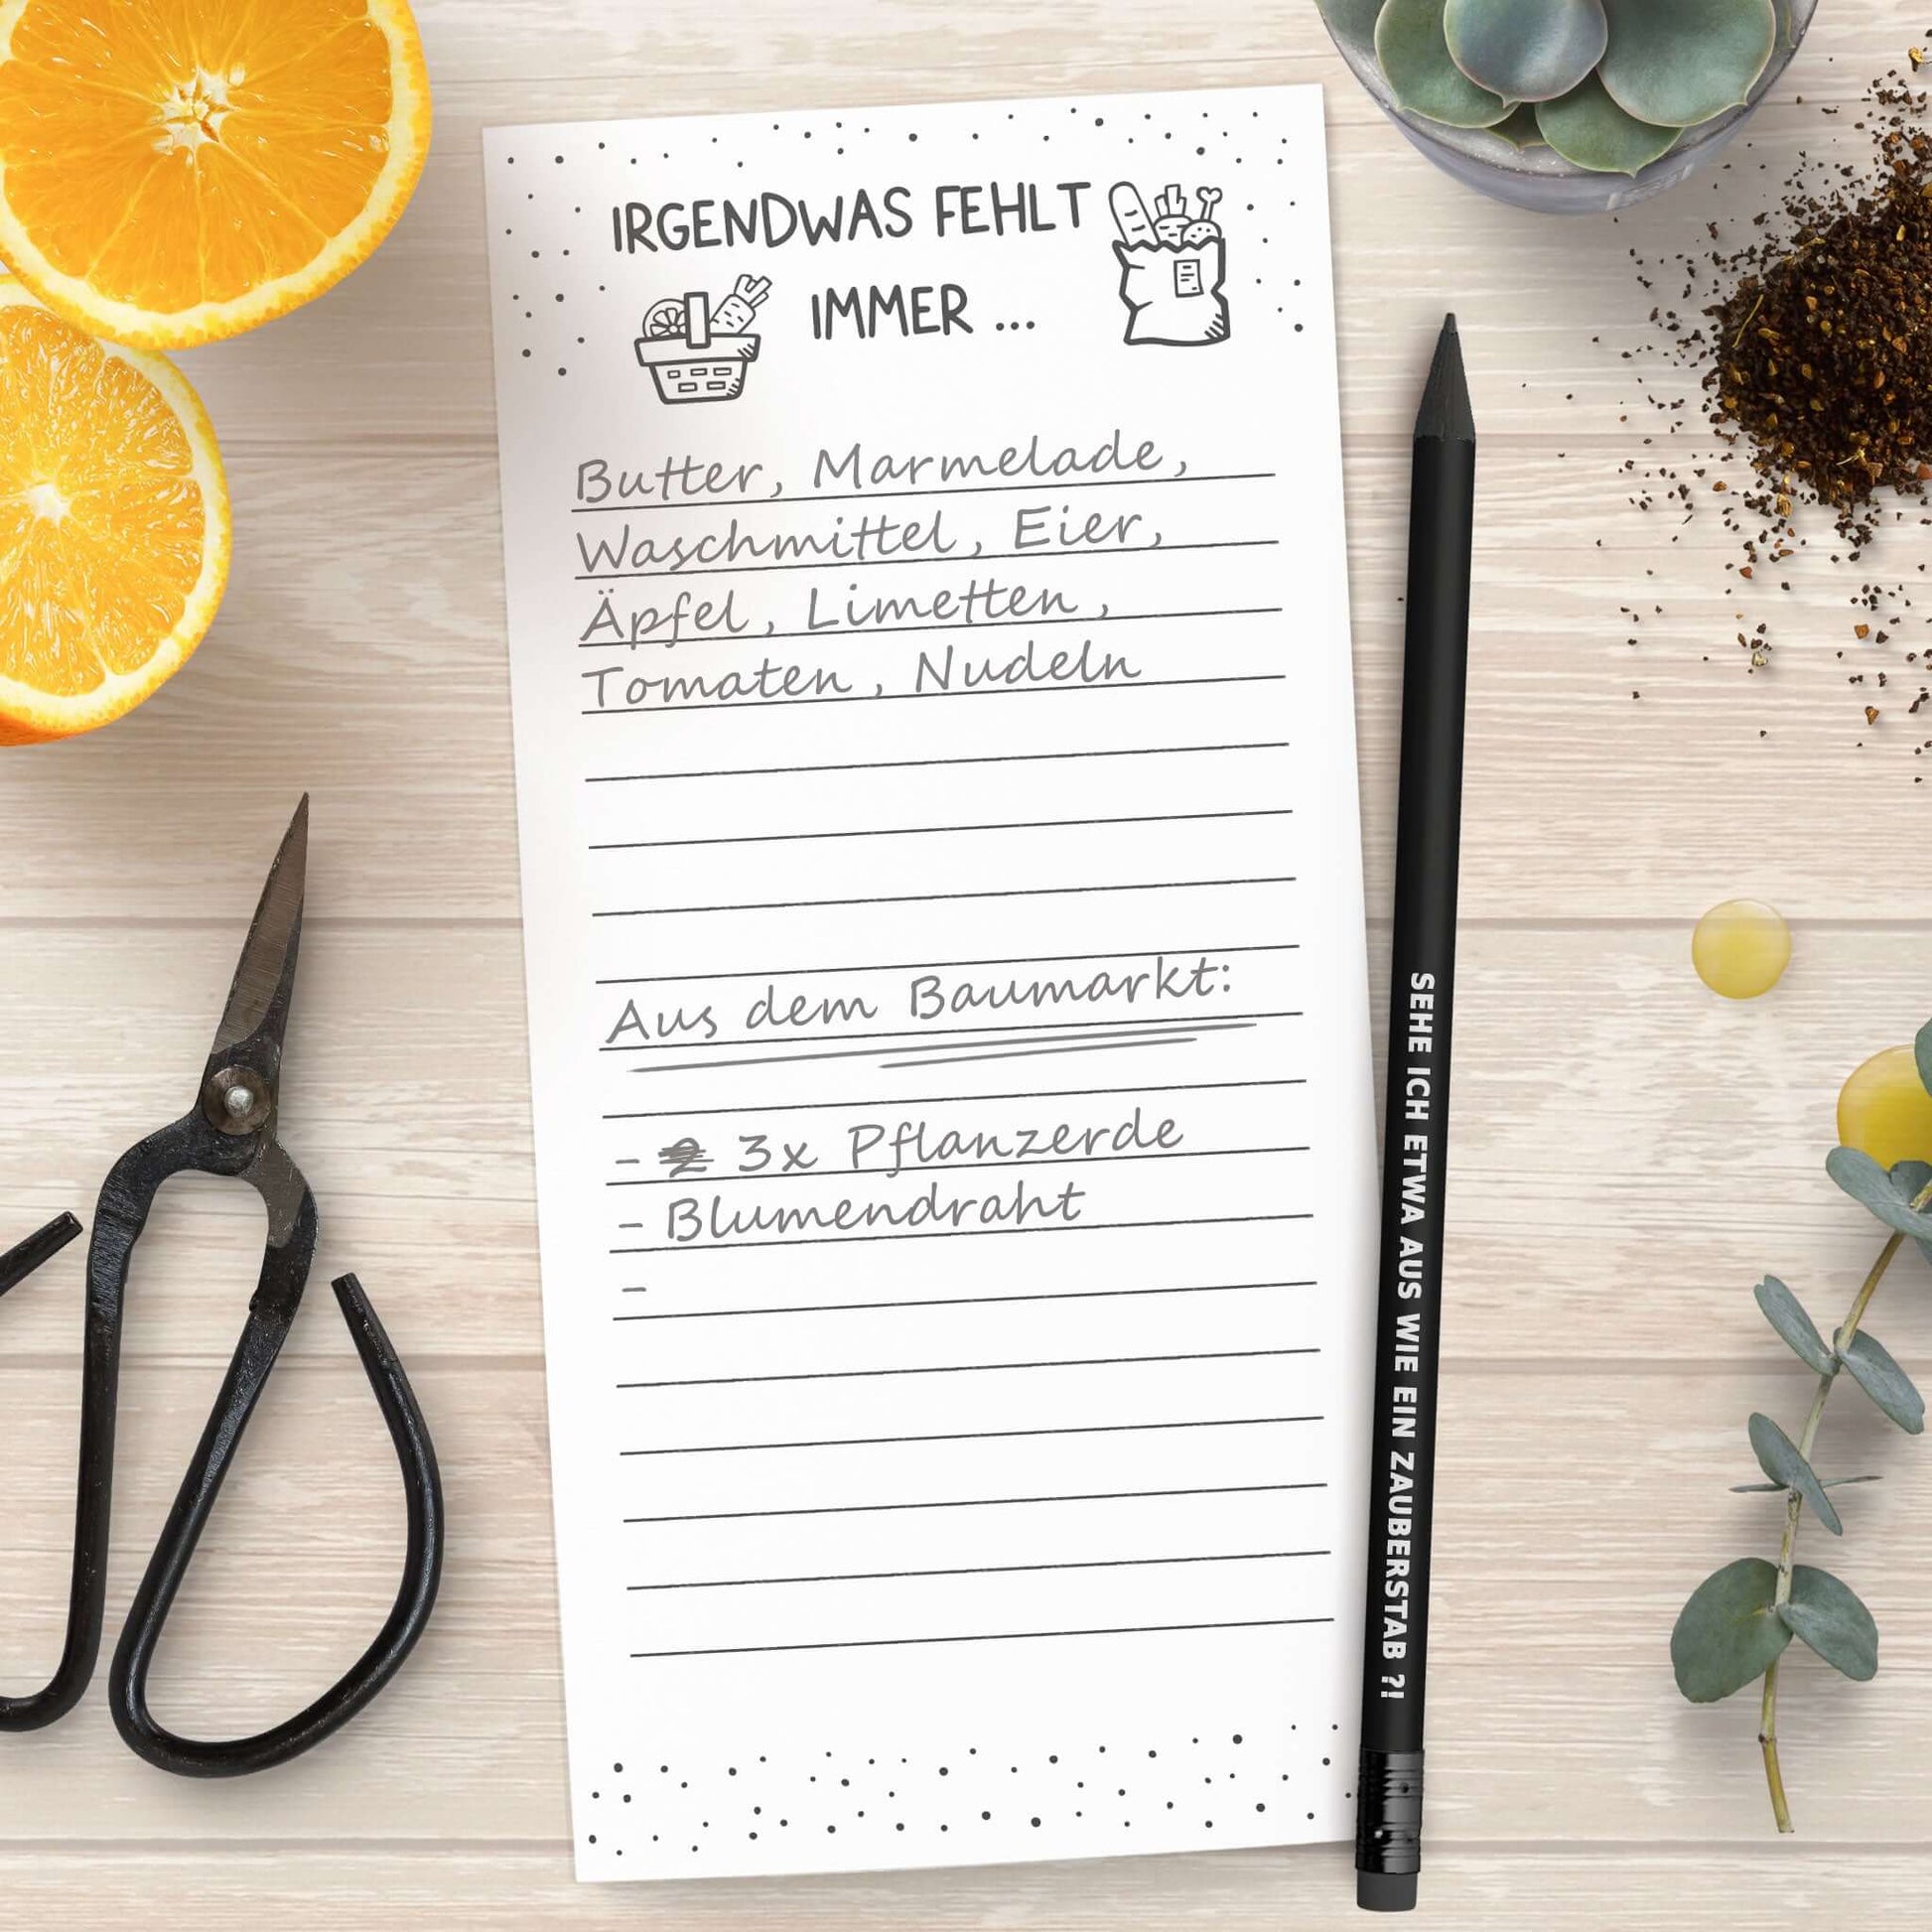 IRGENDWAS FEHLT
IMMER ...
Butter, Marmelade,
Waschmittel, Eier,
Äpfel, Limetten,
Tomaten, Nudeln
Aus dem Baumarkt:
- 3x Pflanzerde
- Blumendraht
-
SEHE ICH ETWA AUS WIE EIN ZAUBERSTAB ?!